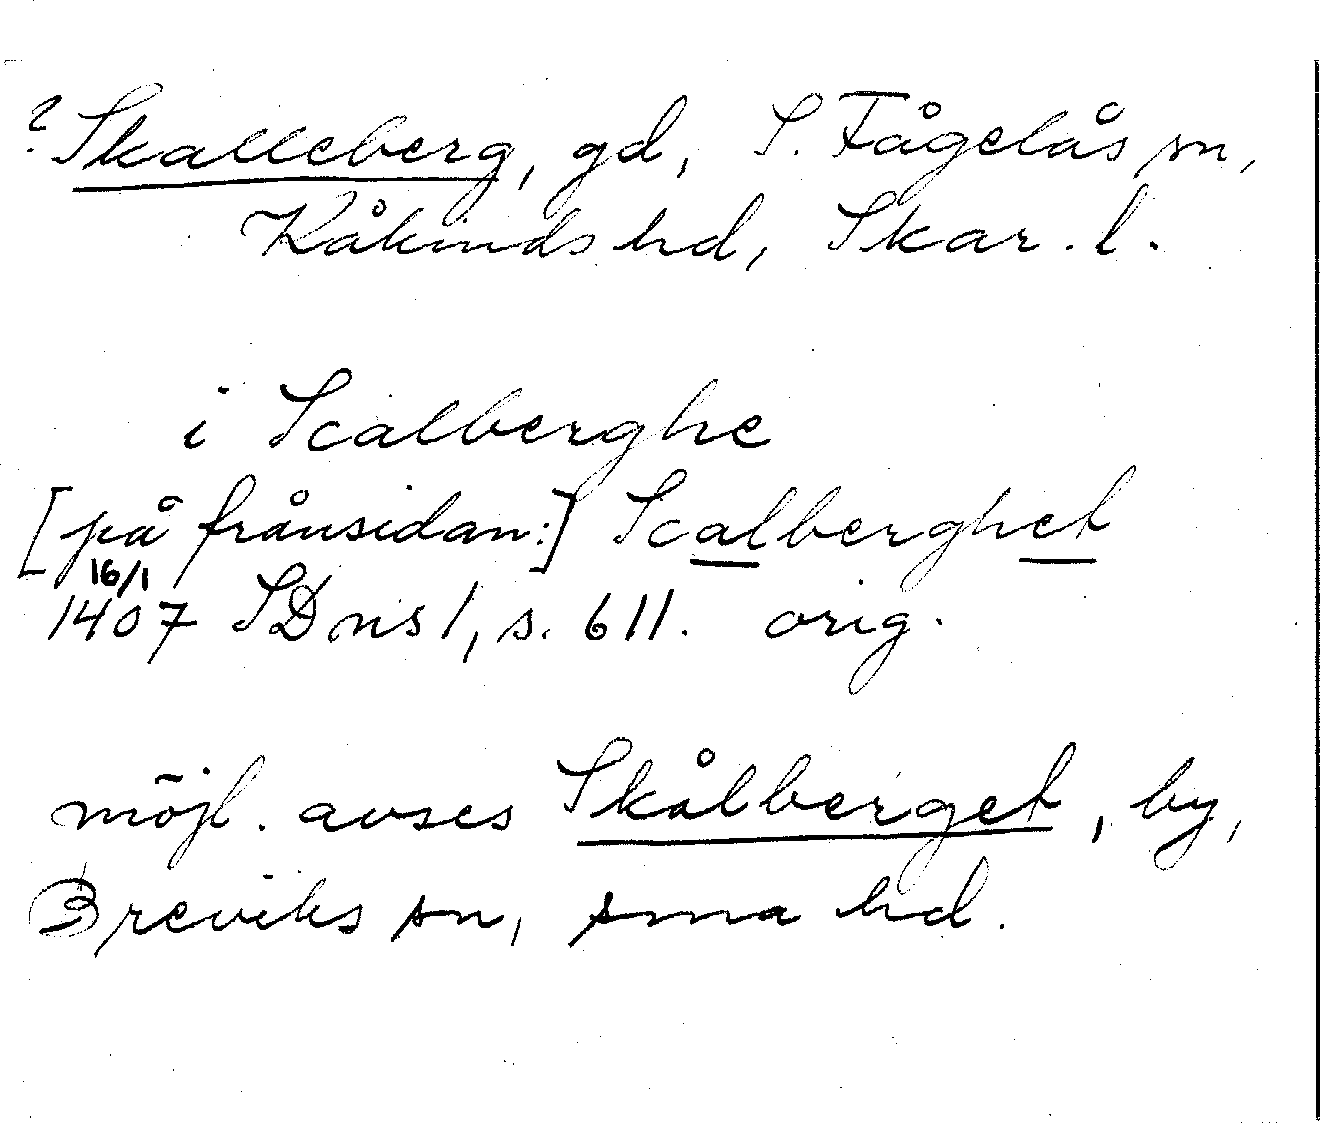 ? Skalleberg, gd, S. Fågelås sn,
Kåkinds hd, Skar. l.
i Scalberghe
[på frånsidan:] Scalberghet
16/1
1407 SDns 1, s. 611. orig.
möjl. avses Skålberget, by,
Breviks sn, sma hd.